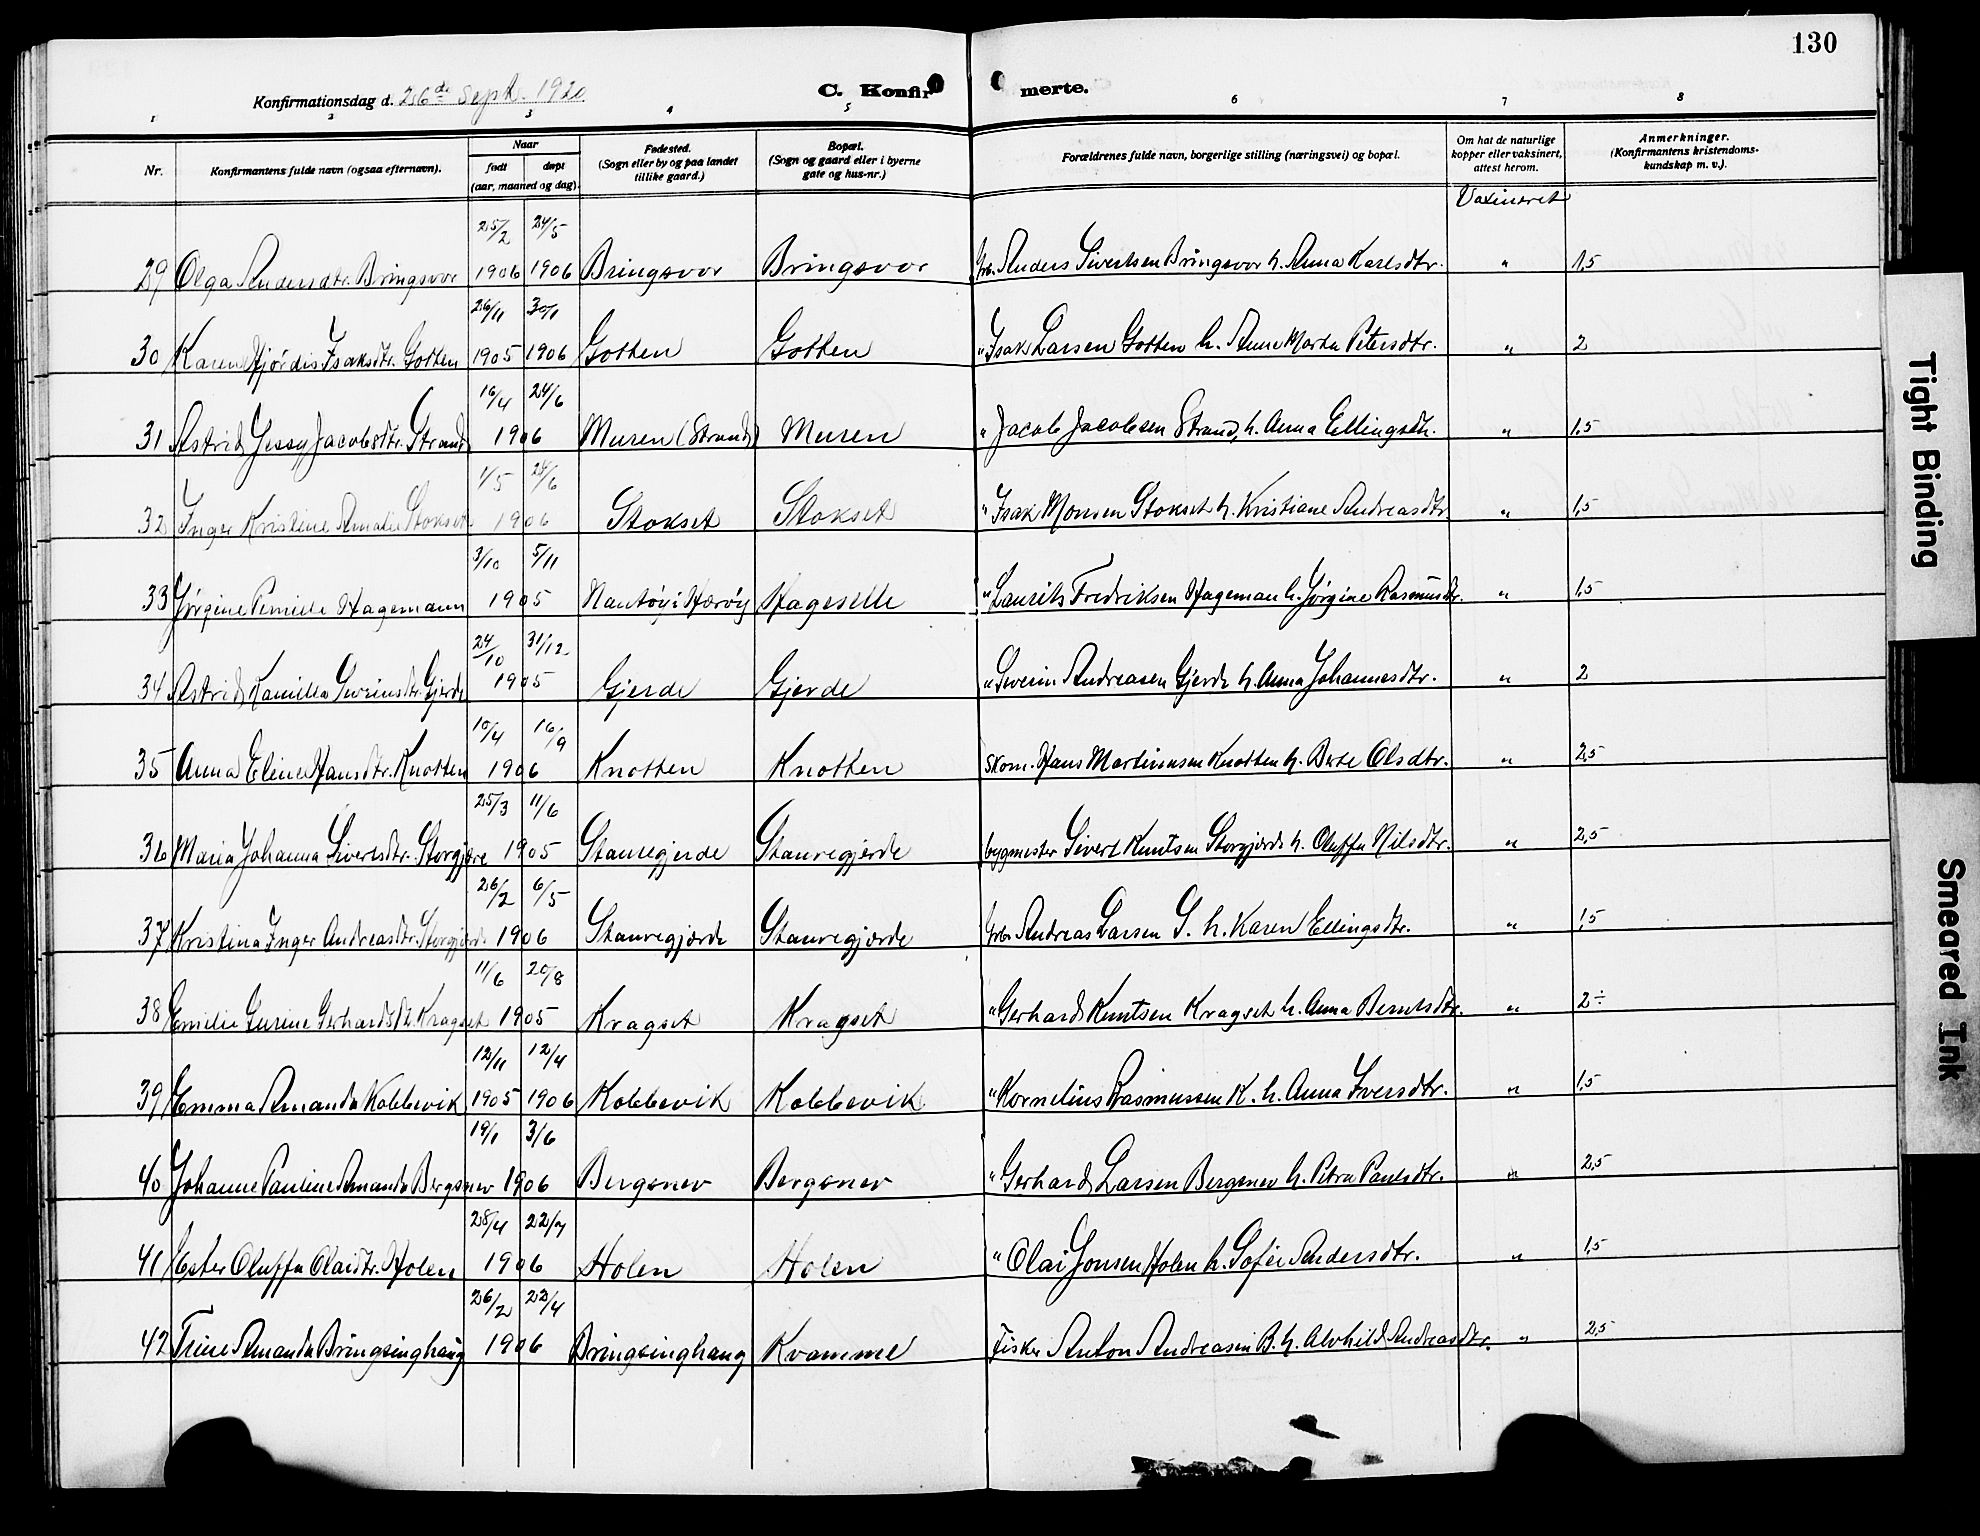 130
Konfirmationsdag d. 26de Sept. 1920 C. Konfir merte.
1 2 3 4 5 6 7 8
Nr. Konfirmantens fulde navn (ogsaa efternavn). Naar født døpt (aar, maaned og dag). Fødested. (Sogn eller by og paa landet tillike gaard.) Bopæl. (Sogn og gaard eller i byerne gate og hus-nr.) Forældrenes fulde navn, borgerlige stilling (næringsvei) og bopæl. Om hat de naturlige kopper eller vaksinert, attest herom. Anmerkninger. (Konfirmantens kristendoms-kundskap m. v.).
Vaxineret
25/2 24/5
29 Olga Andersdtr. Bringsvor 1906 1906 Bringsvor Bringsvor Grb. Anders Sivertsen Bringsvor h. Anna Karlsdtr. " 1,5
26/11 30/1
30 Karen Hjørdis Isaksdtr. Gotten 1905 1906 Gotten Gotten " Isak Larsen Gotten h. Anne Marta Petersdtr. " 2
16/4 24/6
31 Astrid Jessy Jacobsdtr. Strand 1906 Muren (Strand) Muren " Jacob Jacobsen Strand, h. Anna Ellingsdtr. " 1,5
1/5 24/6
32 Inger Kristine Amalie Stokset 1906 Stokset Stokset " Isak Monsen Stokset h. Kristiane Andreasdtr. " 1,5
3/10 5/11
33 Jørgine Pernille Hagemann 1905 Nautøy i Herøy Hageselle " Laurits Fredriksen Hageman h. Jørgine Rasmusdtr. " 1,5
24/10 31/12
34 Astrid Kamilla Severinsdtr. Gjerde 1905 Gjerde Gjerde " Severin Andreasen Gjerde h. Anna Johannesdtr. " 2
10/4 16/9
35 Anna Eline Hansdtr. Knotten 1906 Knotten Knotten Skom. Hans Martinusen Knotten h. Berte Olsdtr. " 2,5
25/3 11/6
36 Maria Johanna Sivertsdtr. Storgjære 1905 Stauregjerde Stauregjerde bygmester Sivert Knutsen Storgjærde h. Oluffa Nilsdtr. " 2,5
26/2 6/5
37 Kristina Inger Andreasdtr. Storgjerde 1906 Stauregjærde Stauregjærde Grb. Andreas Larsen S. h. Karen Ellingsdtr. " 1,5
11/6 20/8
38 Emilie Gurine Gerhardsdtr. Kragset 1905 Kragset Kragset " Gerhard Knutsen Kragset h. Anna Berntsdtr. " 2÷
12/11 12/4
39 Emma Amanda Kobbevik 1905 1906 Kobbevik Kobbevik " Kornelius Rasmussen K. h. Anna Iversdtr. " 1,5
19/1 3/6
40 Johanne Pauline Amanda Bergsnev 1906 Bergsnev Bergsnev " Gerhard Larsen Bergsnev h. Petra Paulsdtr. " 2,5
28/4 22/7
41 Ester Oluffa Olaidtr. Holen 1906 Holen Holen " Olai Jonsen Holen h. Sofie Andersdtr. " 1,5
26/2 22/4
42 Trine Amanda Bringsinghaug 1906 Bringsinghaug Kvamme Fisker Anton Andreasen B. h. Alvhild Andreasdtr. " 2,5
Tight Binding
Smeared Ink